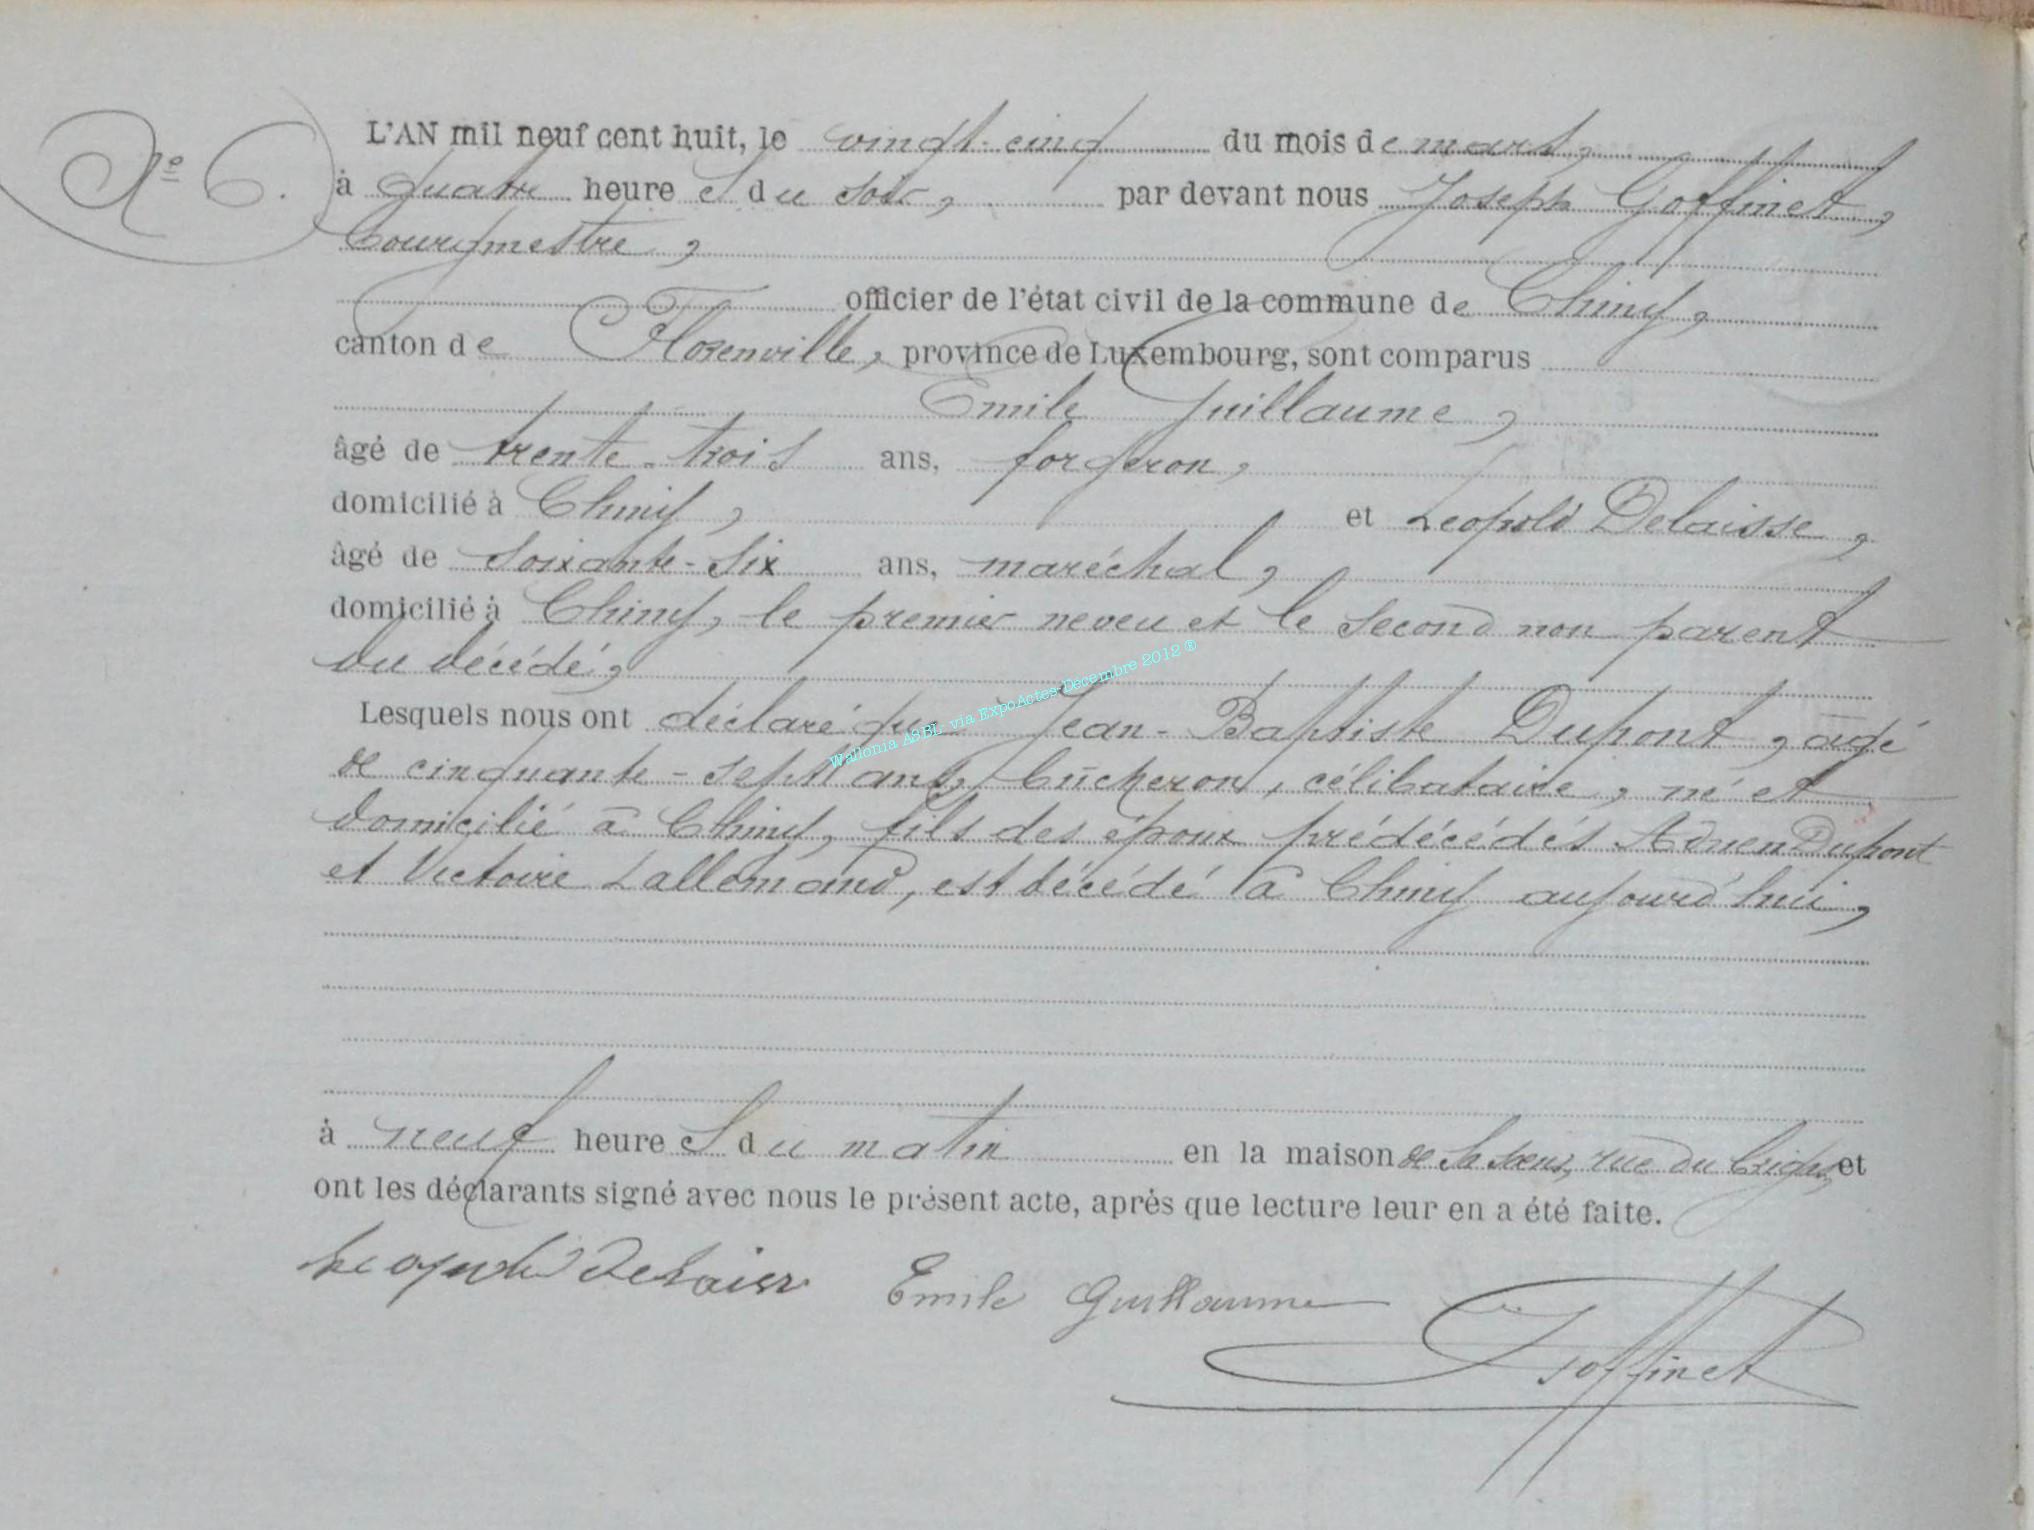 N° 6.
L'AN mil neuf cent huit, le vingt-cinq du mois de mars,
à quatre heures du soir, par devant nous Joseph Goffinet,
bourgmestre,
officier de l'état civil de la commune de Chiny,
canton de Florenville, province de Luxembourg, sont comparus
Emile Guillaume,
âgé de trente-trois ans, forgeron,
domicilié à Chiny, et Léopold Delaisse,
âgé de soixante-six ans, maréchal,
domicilié à Chiny, le premier neveu et le second non parent
du décédé,
Lesquels nous ont déclaré que Jean-Baptiste Dupont, âgé
de cinquante-sept ans, bûcheron, célibataire, né et
domicilié à Chiny, fils des époux prédécédés Adrien Dupont
et Victoire Lallemand, est décédé à Chiny aujourd'hui,
à neuf heures du matin en la maison de sa sœur, rue du et
ont les déclarants signé avec nous le présent acte, après que lecture leur en a été faite.
Léopold Delaisse Emile Guillaume
Goffinet
Wallonia ASBL via ExpoActes-Décembre 2012 ®